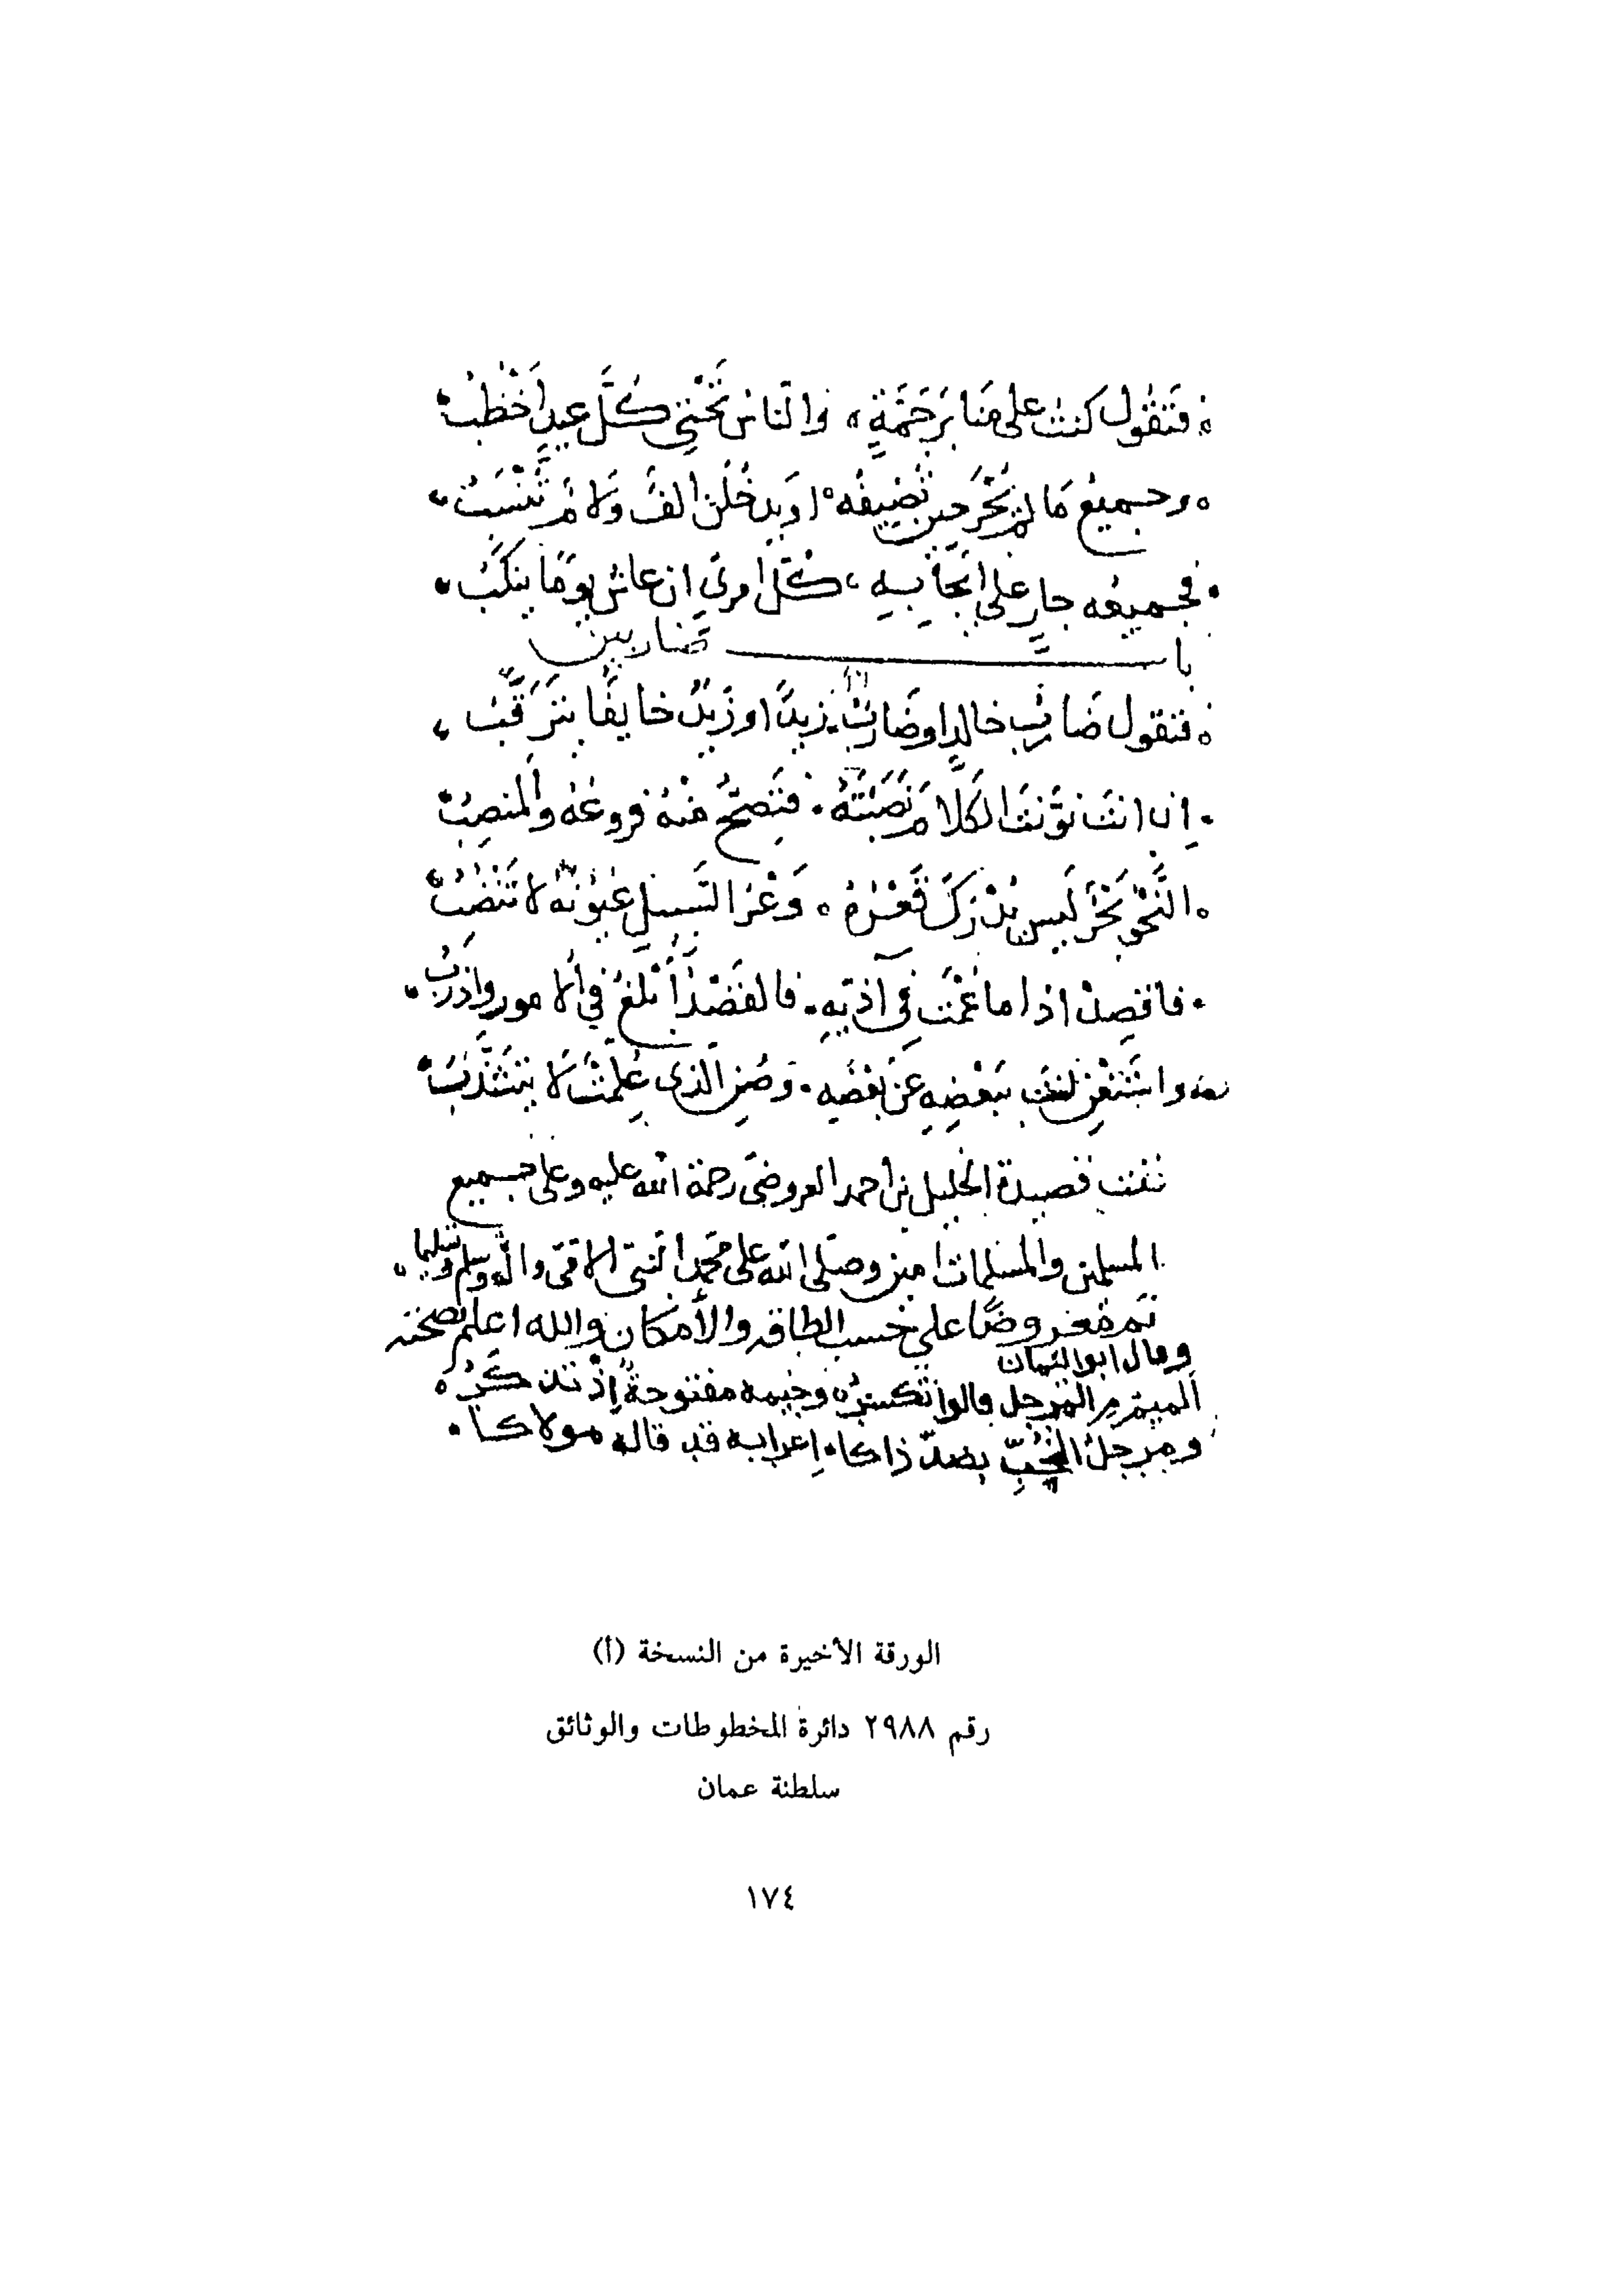 فَتَقُول كنتُ على مَنابرَ جَمَّةٍ ، والنَّاسُ تَحْتِي كُلَّ عِيدٍ أَخْطُبُ
وجميعُ مَا لم يَجْرِ حين تُضِيفُه او يدخلن الفٌ وَلامٌ تُنْسَبُ
فجميعه جارٍ على ابحابِه ، كُلُّ امرئٍ ان عاش يومًا ينكبُ
باب ضاربين
فتقول ضاربُ خالدٍ او ضاربٌ زيدًا وزَيدٌ خايفًا يترَقَّبُ
إن انت نَوَّنتَ الكلامَ نَصَبْتَهُ . فتَصِحُّ مْنهُ فروعُهُ والمنصِبُ
النَّحْوُ بَحْرٌ ليس يُدْرَكُ قَعْرُهُ ، وَعْرُ السَّبِيلِ عُيُونُهُ لا تَنْضُبُ
فاقصِدْ اذا ما عُمْتَ في آذيّهِ . فالقَصْدُ أَبْلَغُ في الامور واذربُ
واستَغْنِ انتَ بِبَعْضِهِ عَن بَعْضِهِ . وصُنِ الذي عُلِّمْتَ لا يتشَذَّبُ
تمت قصيدة الخليل بن أحمد العروضي رحمة الله عليه وعلى جميع
المسلمين والمسلمات امين وصلى الله على محمد النبي الامي واله وسلم تسليما
تم معروضًا على حسب الطاقه والأمكان والله اعلم بصحته
وقال ابو اليمان
الميم من المرجل قالوا تكسرُ ، وجيمه مفتوحةٌ إذ تذكَرُ
ومرجلُ الحُبِّ بضدّ ذاكا ، إعرابه قد قاله مولاكا
الورقة الأخيرة من النسخة (أ)
رقم ٢٩٨٨ دائرة المخطوطات والوثائق
سلطنة عمان
١٧٤